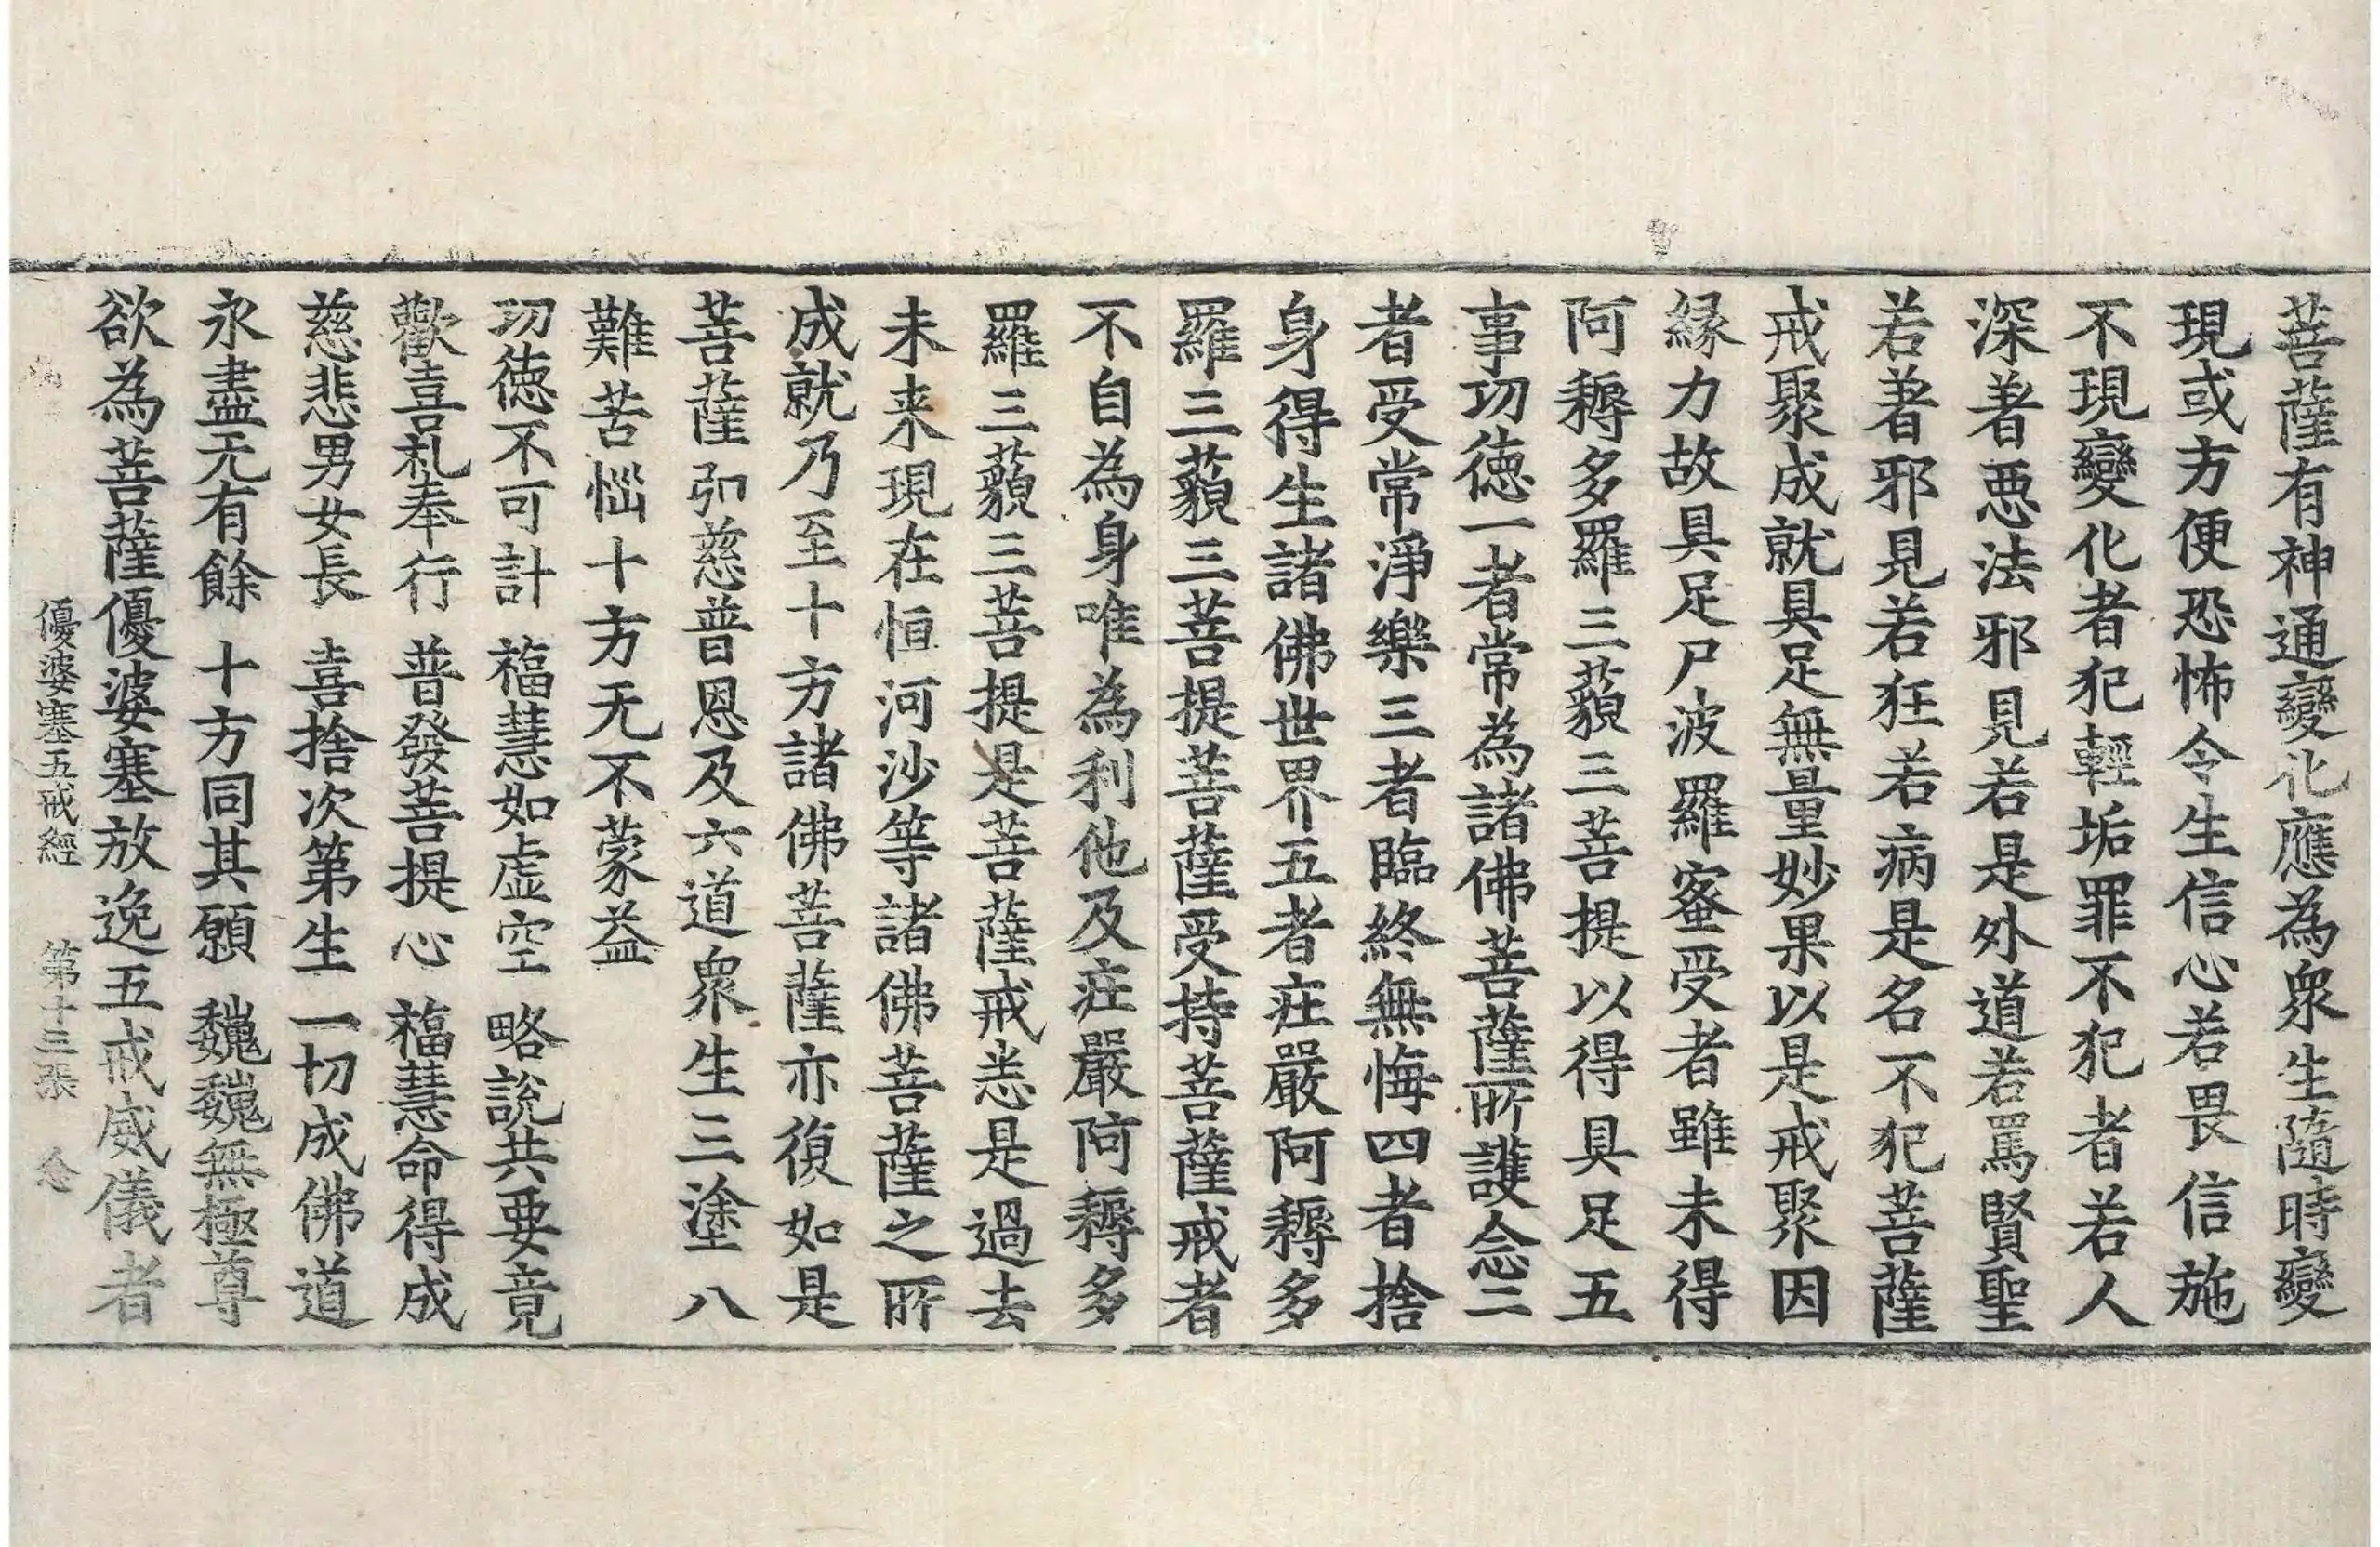 菩薩有神通變化應為衆生隨時變
現或方便恐怖令生信心若畏信施
不現變化者犯輕垢罪不犯者若人
深著惡法邪見若是外道若罵賢聖
若著邪見若狂若病是名不犯菩薩
戒聚成就具足無量妙果以是戒聚因
縁力故具足尸波羅蜜受者雖未得
阿耨多羅三藐三菩提以得具足五
事切徳一者常為諸佛菩薩所護念二
者受常淨樂三者臨終無悔四者捨
身得生諸佛世界五者庄嚴阿耨多
羅三藐三菩提菩薩受持菩薩戒者
不自為身唯為利他及庄嚴阿耨多
羅三藐三菩提是菩薩戒恙是過去
未来現在恒河沙等諸佛菩薩之所
成就乃至十方諸佛菩薩亦復如是
菩薩弘慈普恩及六道衆生三塗八
難苦惱十方无不蒙益
切徳不可計 福慧如虛空 略說共要竟
歡喜礼奉行 普發菩提心 福慧命得成
慈悲男女長 喜捨次第生 一切成佛道
永盡无有餘 十方同其願 巍巍無極尊
欲為菩薩優婆塞放逸五戒威儀者
優婆塞五戒經 第十三張 念